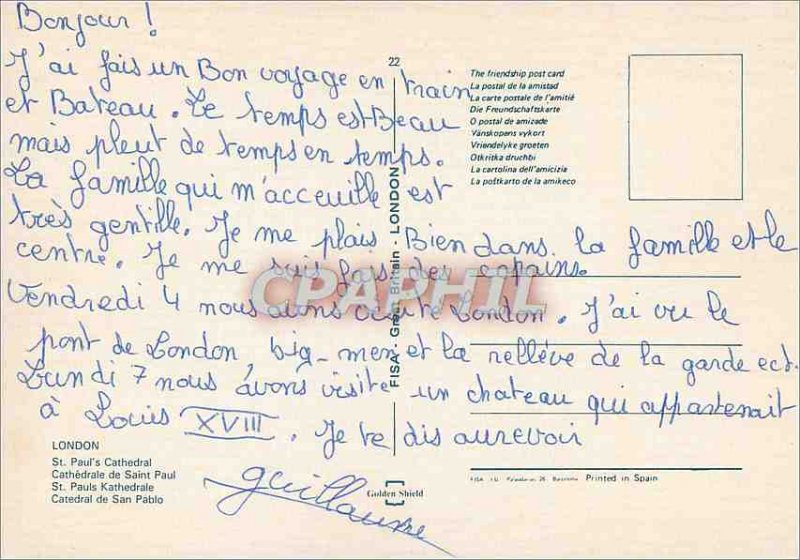 Bonjour !
J'ai fais un Bon voyage en train
et Bateau. Le temps est Beau
mais pleut de temps en temps.
La famille qui m'acceuille est
très gentille. Je me plais Bien dans la famille et le
centre. Je me suis fais des copains.
Vendredi 4 nous avons visité London. J'ai vu le
pont de London big-men et la rellève de la garde ect.
Lundi 7 nous avons visité un chateau qui appartenait
à Louis XVIII. Je te dis aurevoir
guillaume
22
The friendship post card
La postal de la amistad
La carte postale de l'amitié
Die Freundschaftskarte
O postal de amizade
Vänskapens vykort
Vriendelyke groeten
Otkritka druchbi
La cartolina dell'amicizia
La poŝtkarto de la amikeco
FISA - Great Britain - LONDON
CPARPHIL
LONDON
St. Paul's Cathedral
Cathédrale de Saint Paul
St. Pauls Kathedrale
Catedral de San Pablo
Golden Shield
FISA Barcelona Printed in Spain